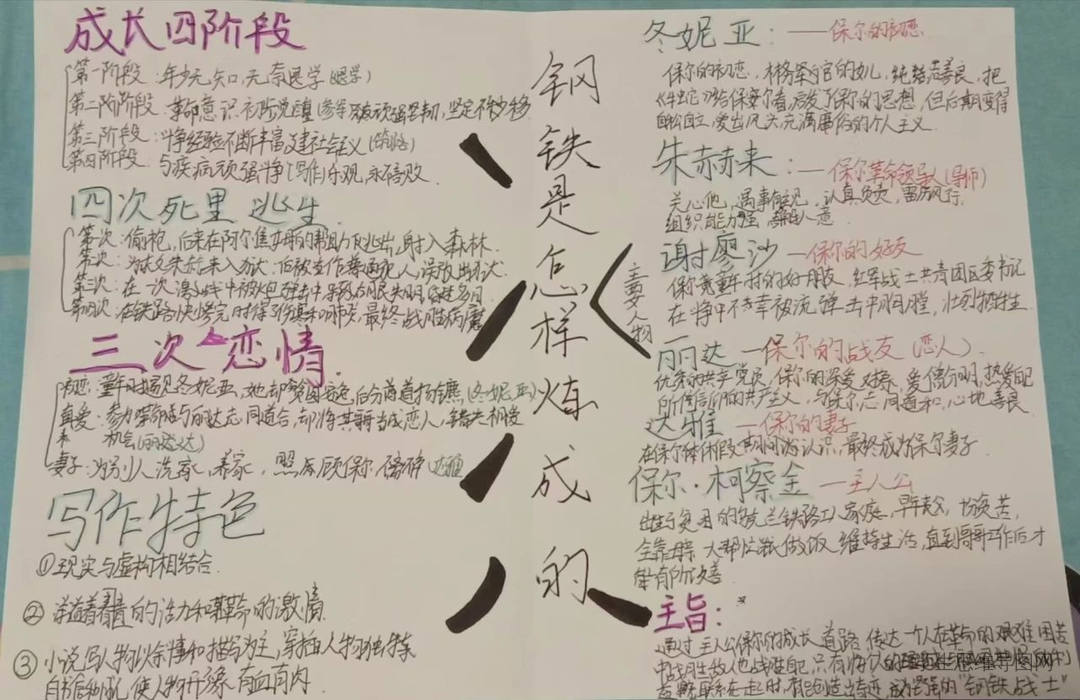 成长四阶段
第一阶段：年少无知，无奈退学（退学）
第二阶段：革命意识初步觉醒（参军）顽强坚韧，坚定不移
第三阶段：斗争经验不断丰富建社会主义
第四阶段：与疾病顽强斗争（写作）乐观，永不言败.
四次死里逃生.
第一次：偷枪，后来在阿尔焦母的帮助下逃出，躲入森林.
第二次：为救朱赫来入
第三次：在一次激战中被炮弹击中导致右眼失明
第四次：在铁路快修完时得了伤寒和肺炎，最终战胜病魔
三次恋情.
初恋：童年时遇见冬妮亚，她却贫图安逸，后分道扬镳（冬妮亚）
真爱：参加革命时与丽达志同道合，却将其哥当成恋人，错失相爱
机会（丽达）
妻子：为别人洗 养家，照顾保尔 达雅
写作特色
①现实与虚构相结合.
②洋溢着 的活力和革命的激情.
③小说写人物以叙事和描写为主，穿插人物独
使人物形象有血有肉.
钢铁是怎样炼成的
主要人物
冬妮亚：——保尔的初恋
保尔的初恋，林务官的女儿，纯 善良，把
《牛虻》给保尔看，启发了保尔的思想，但后期变得
爱出风头，充满庸俗的个人主义.
朱赫来：——保尔革命领导人（导师）
关心他，遇事 认真负责，雷厉风行，
组织能力强
谢廖沙——保尔的好友
保尔童年时的好朋友，红军战士共青团区委书记
在斗争中不幸被流弹击中胸膛，壮烈牺牲.
丽达——保尔的战友（恋人）
优秀的共产党员，保尔的深爱对象，爱憎分明，热爱自己
所信仰的共产主义，与保尔志同道和，心地善良.
达雅——保尔的妻子
在保尔休假 期间认识，最终成为保尔妻子.
保尔·柯察金——主人公
出生于贫困的 兰铁路工人家庭，早年丧父，
全靠母亲 大帮 做饭 维持生活，直到哥哥工作后才
有所改善.
主旨：
通过主人公保尔的成长道路，传达一个人在革命的艰难困苦
中战胜敌人也战胜自己，只有将
联系在一起时，才会创造出奇迹，成长为"钢铁战士"